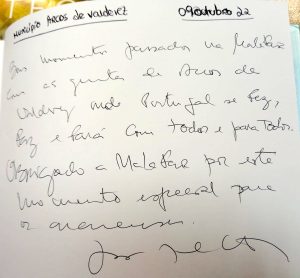 Município Arcos de Valdevez 09 outubro 22
Bons momentos passados na Malafaia
com as gentes de Arcos de
Valdevez onde Portugal se fez,
fez e fará com todos e para todos.
Obrigado a Malafaia por este
momento especial para
os arcuenses.